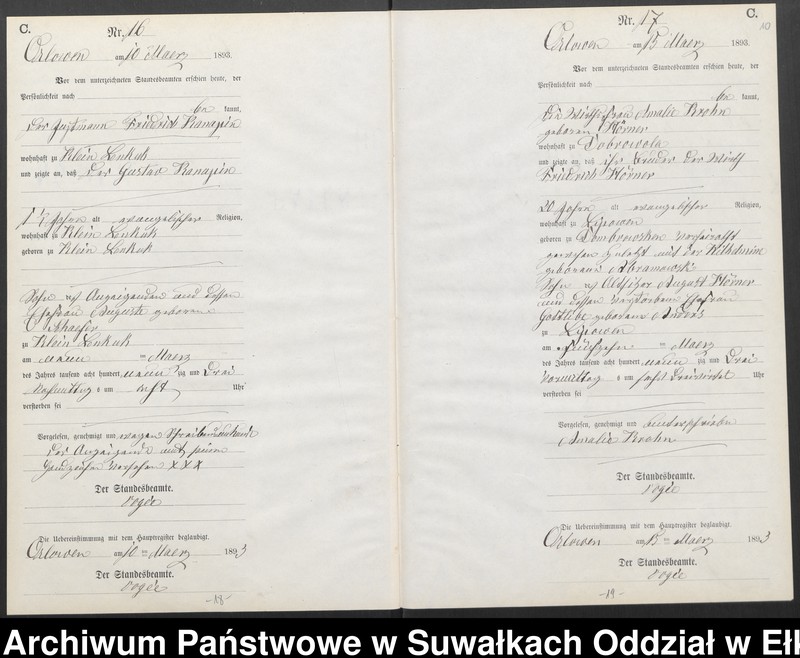 C.
Nr. 16
Orlowen am 10 Maerz 1893.
Vor dem unterzeichneten Standesbeamten erschien heute, der
Persönlichkeit nach
be kannt,
der Instmann Friedrich Kanapin
wohnhaft zu Klein Lenkuk
und zeigte an, daß der Gustav Kanapin
alt evangelischer Religion,
wohnhaft zu Klein Lenkuk
geboren zu Klein Lenkuk
Sohn des Anzeigenden und dessen
Ehefrau Auguste geborene
Schaefer
zu Klein Lenkuk
am neun ten Maerz
des Jahres tausend acht hundert neun zig und drei
Nachmittags um acht Uhr
verstorben sei
Vorgelesen, genehmigt und wegen Schreibensunkunde
des Anzeigenden mit seinen
Handzeichen versehen XXX
Der Standesbeamte.
Die Uebereinstimmung mit dem Hauptregister beglaubigt.
Orlowen am 10 ten Maerz 1893
Der Standesbeamte.
-18-
C.
Nr. 17
Orlowen am 15 Maerz 1893.
Vor dem unterzeichneten Standesbeamten erschien heute, der
Persönlichkeit nach
be kannt,
die Wirthsfrau Amalie Krohn
geborene Hörner
wohnhaft zu Dobrowola
und zeigte an, daß ihr Bruder der Wirth
Friedrich Hörner
alt evangelischer Religion,
wohnhaft zu Lipowen
geboren zu Dombrowsken verheirathet
gewesen zuletzt mit der Wilhelmine
geborene Abramowski
Sohn des Altsitzer August Hörner
und dessen verstorbene Ehefrau
Gottliebe geborene Anders
zu Lipowen
am fünfzehn ten Maerz
des Jahres tausend acht hundert neun zig und drei
Vormittags um Uhr
verstorben sei
Vorgelesen, genehmigt und unterschrieben
Amalie Krohn
Der Standesbeamte.
Die Uebereinstimmung mit dem Hauptregister beglaubigt.
Orlowen am 15 ten Maerz 1893
Der Standesbeamte.
-19-
Archiwum Państwowe w Suwałkach Oddział w Ełk